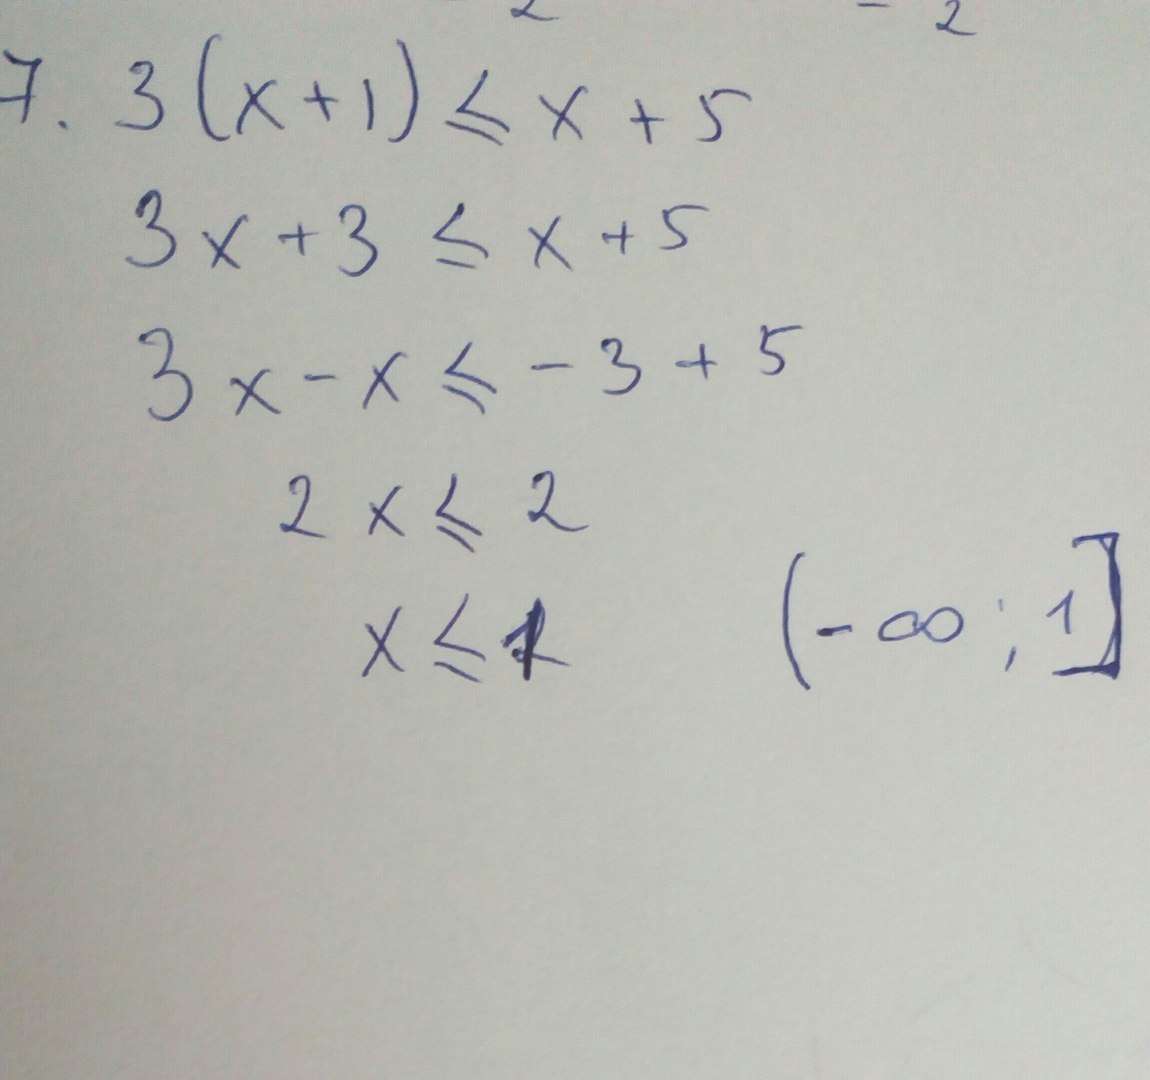 2 - 2
7. 3(x+1) ≤ x + 5
3x + 3 ≤ x + 5
3x - x ≤ - 3 + 5
2x ≤ 2
x ≤ 1 (-∞; 1]